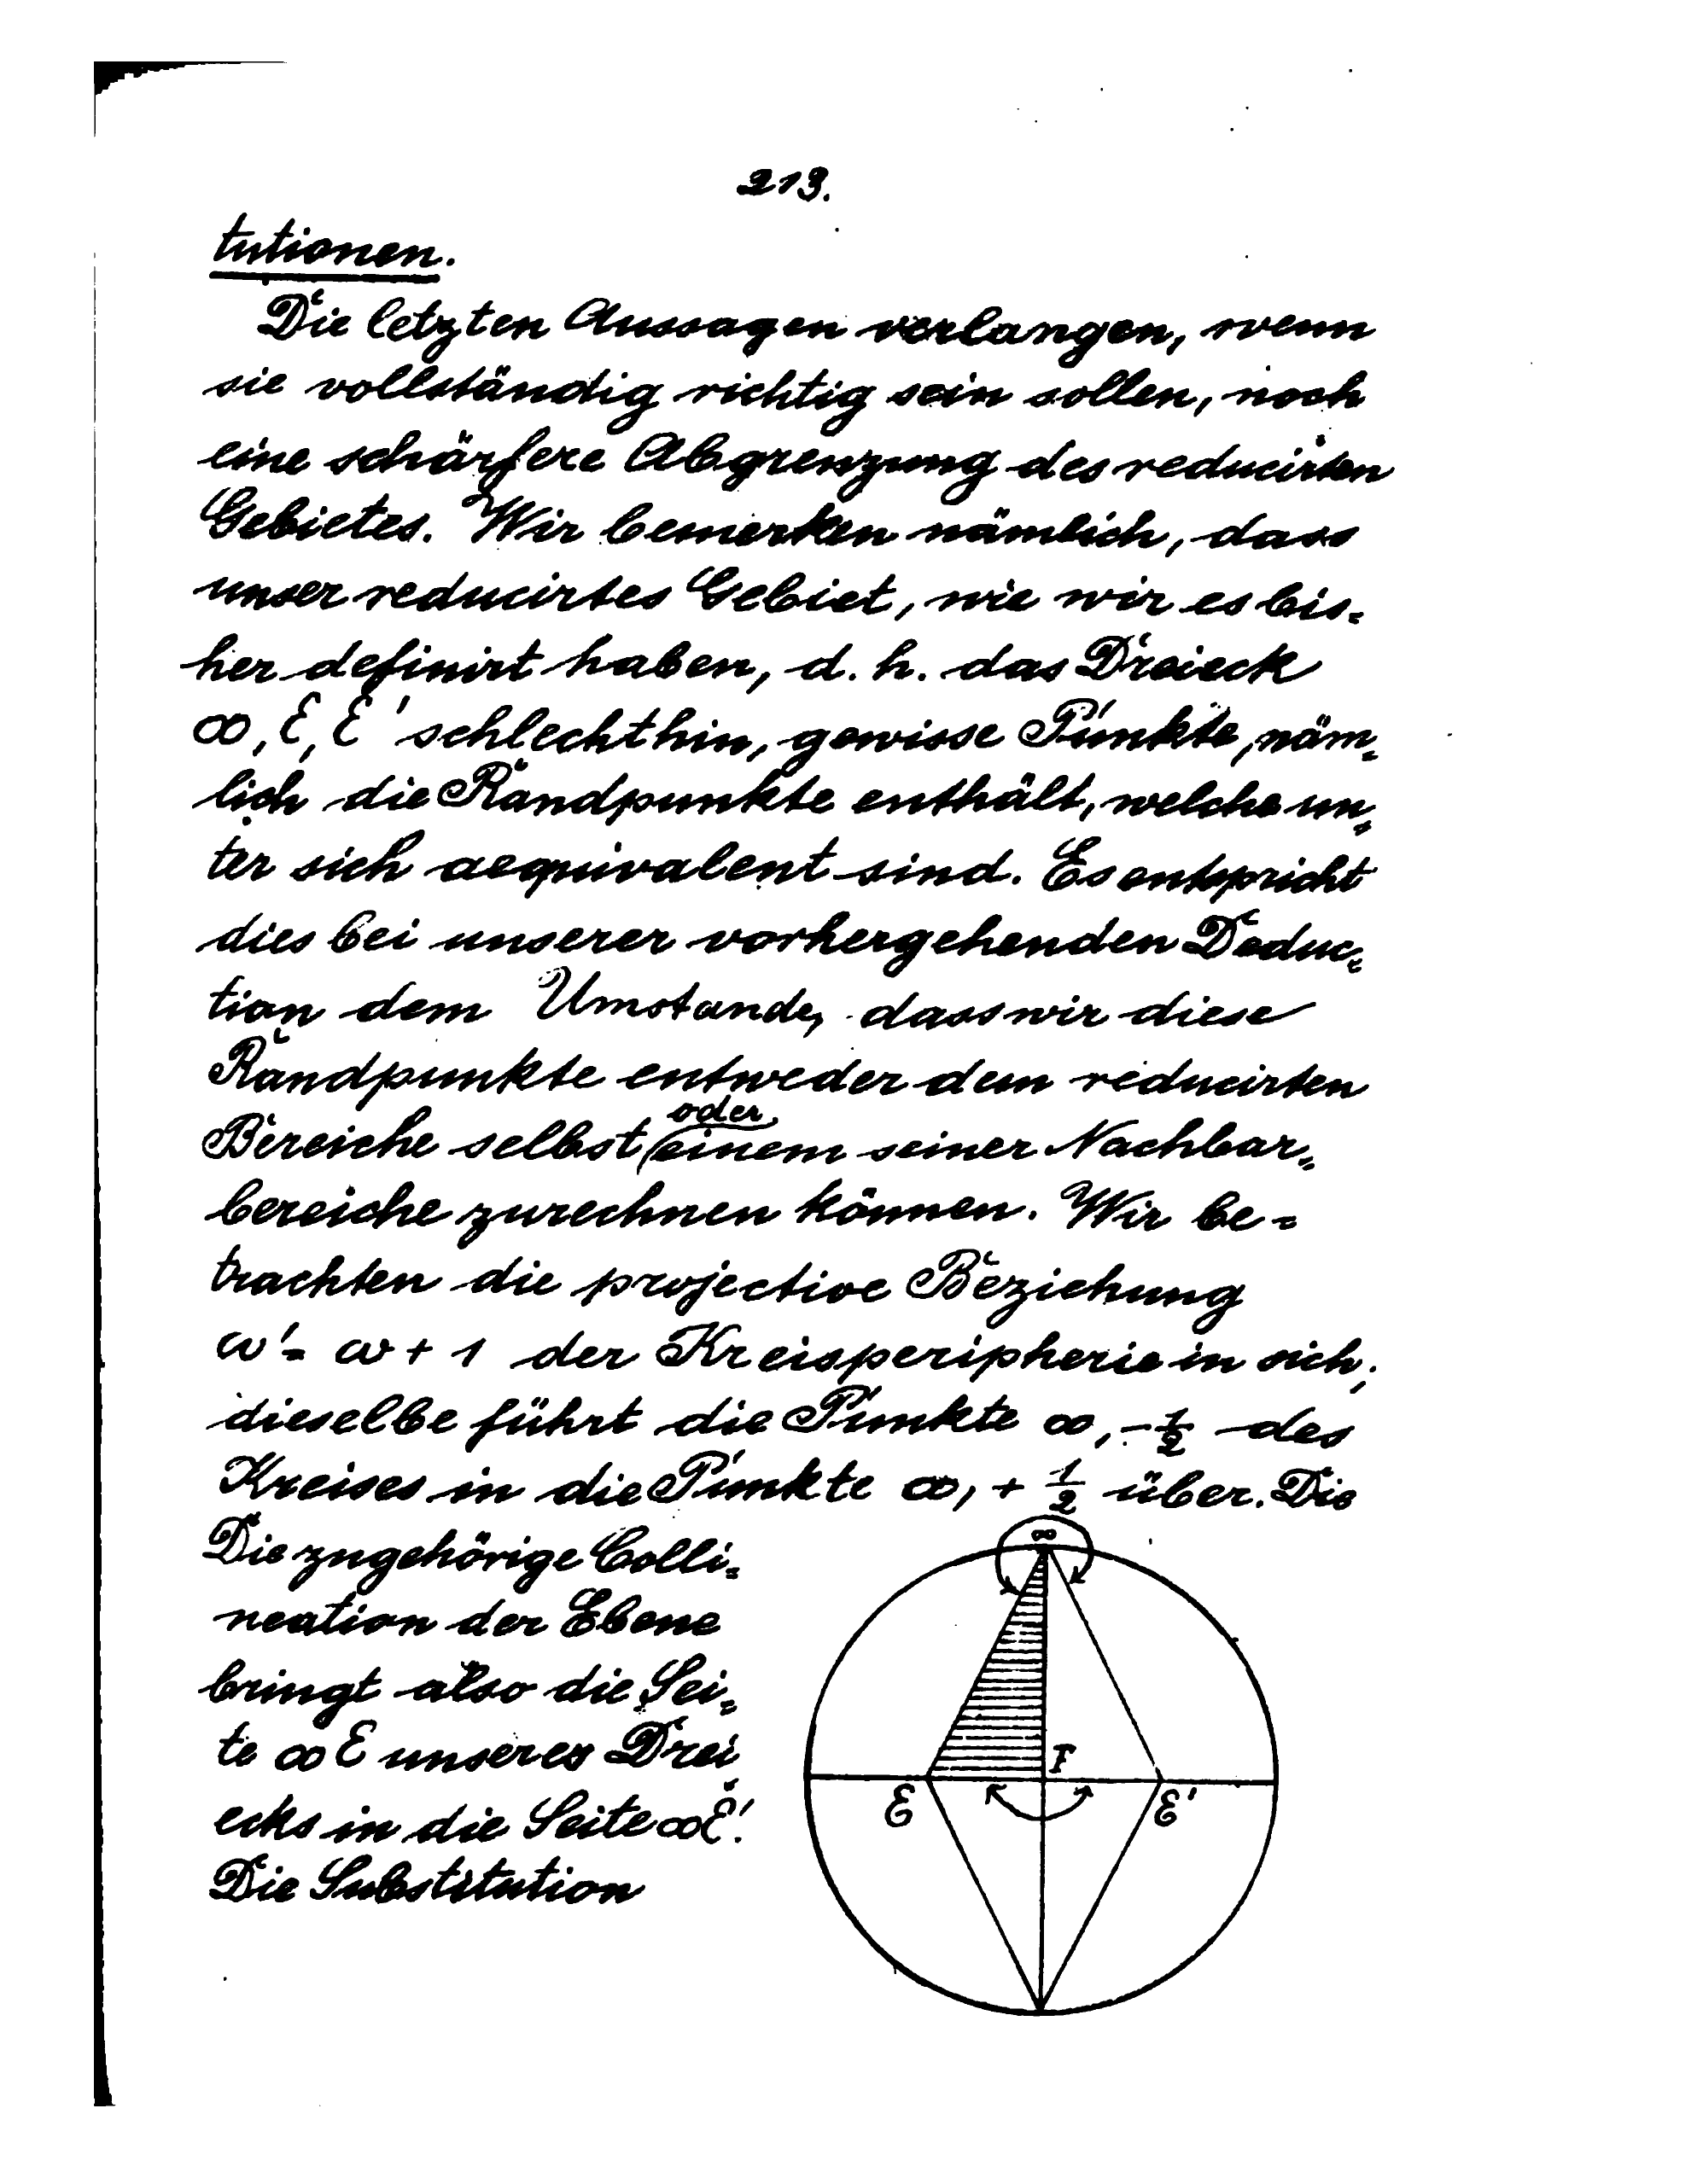 213.
tutionen.
Die letzten Aussagen verlangen, wenn
sie vollständig richtig sein sollen, noch
eine schärfere Abgrenzung des reducirten
Gebietes. Wir bemerken nämlich, dass
unser reducirtes Gebiet, wie wir es bis-
her definirt haben, d. h. das Dreieck
∞, ℰ, ℰ' schlechthin, gewisse Punkte, näm-
lich die Randpunkte enthält, welche un-
ter sich aequivalent sind. Es entspricht
dies bei unserer vorhergehenden Deduc-
tion dem Umstande, dass wir diese
Randpunkte entweder dem reducirten
Bereiche selbst oder einem seiner Nachbar-
bereiche zurechnen können. Wir be-
trachten die projective Beziehung
ω' = ω + 1 der Kreisperipherie in sich;
dieselbe führt die Punkte ∞, -1/2 des
Kreises in die Punkte ∞, + 1/2 über. Die
Die zugehörige Colli-
neation der Ebene
bringt also die Sei-
te ∞ ℰ unseres Drei
ecks in die Seite ∞ℰ'.
Die Substitution
∞
F
ℰ
ℰ'